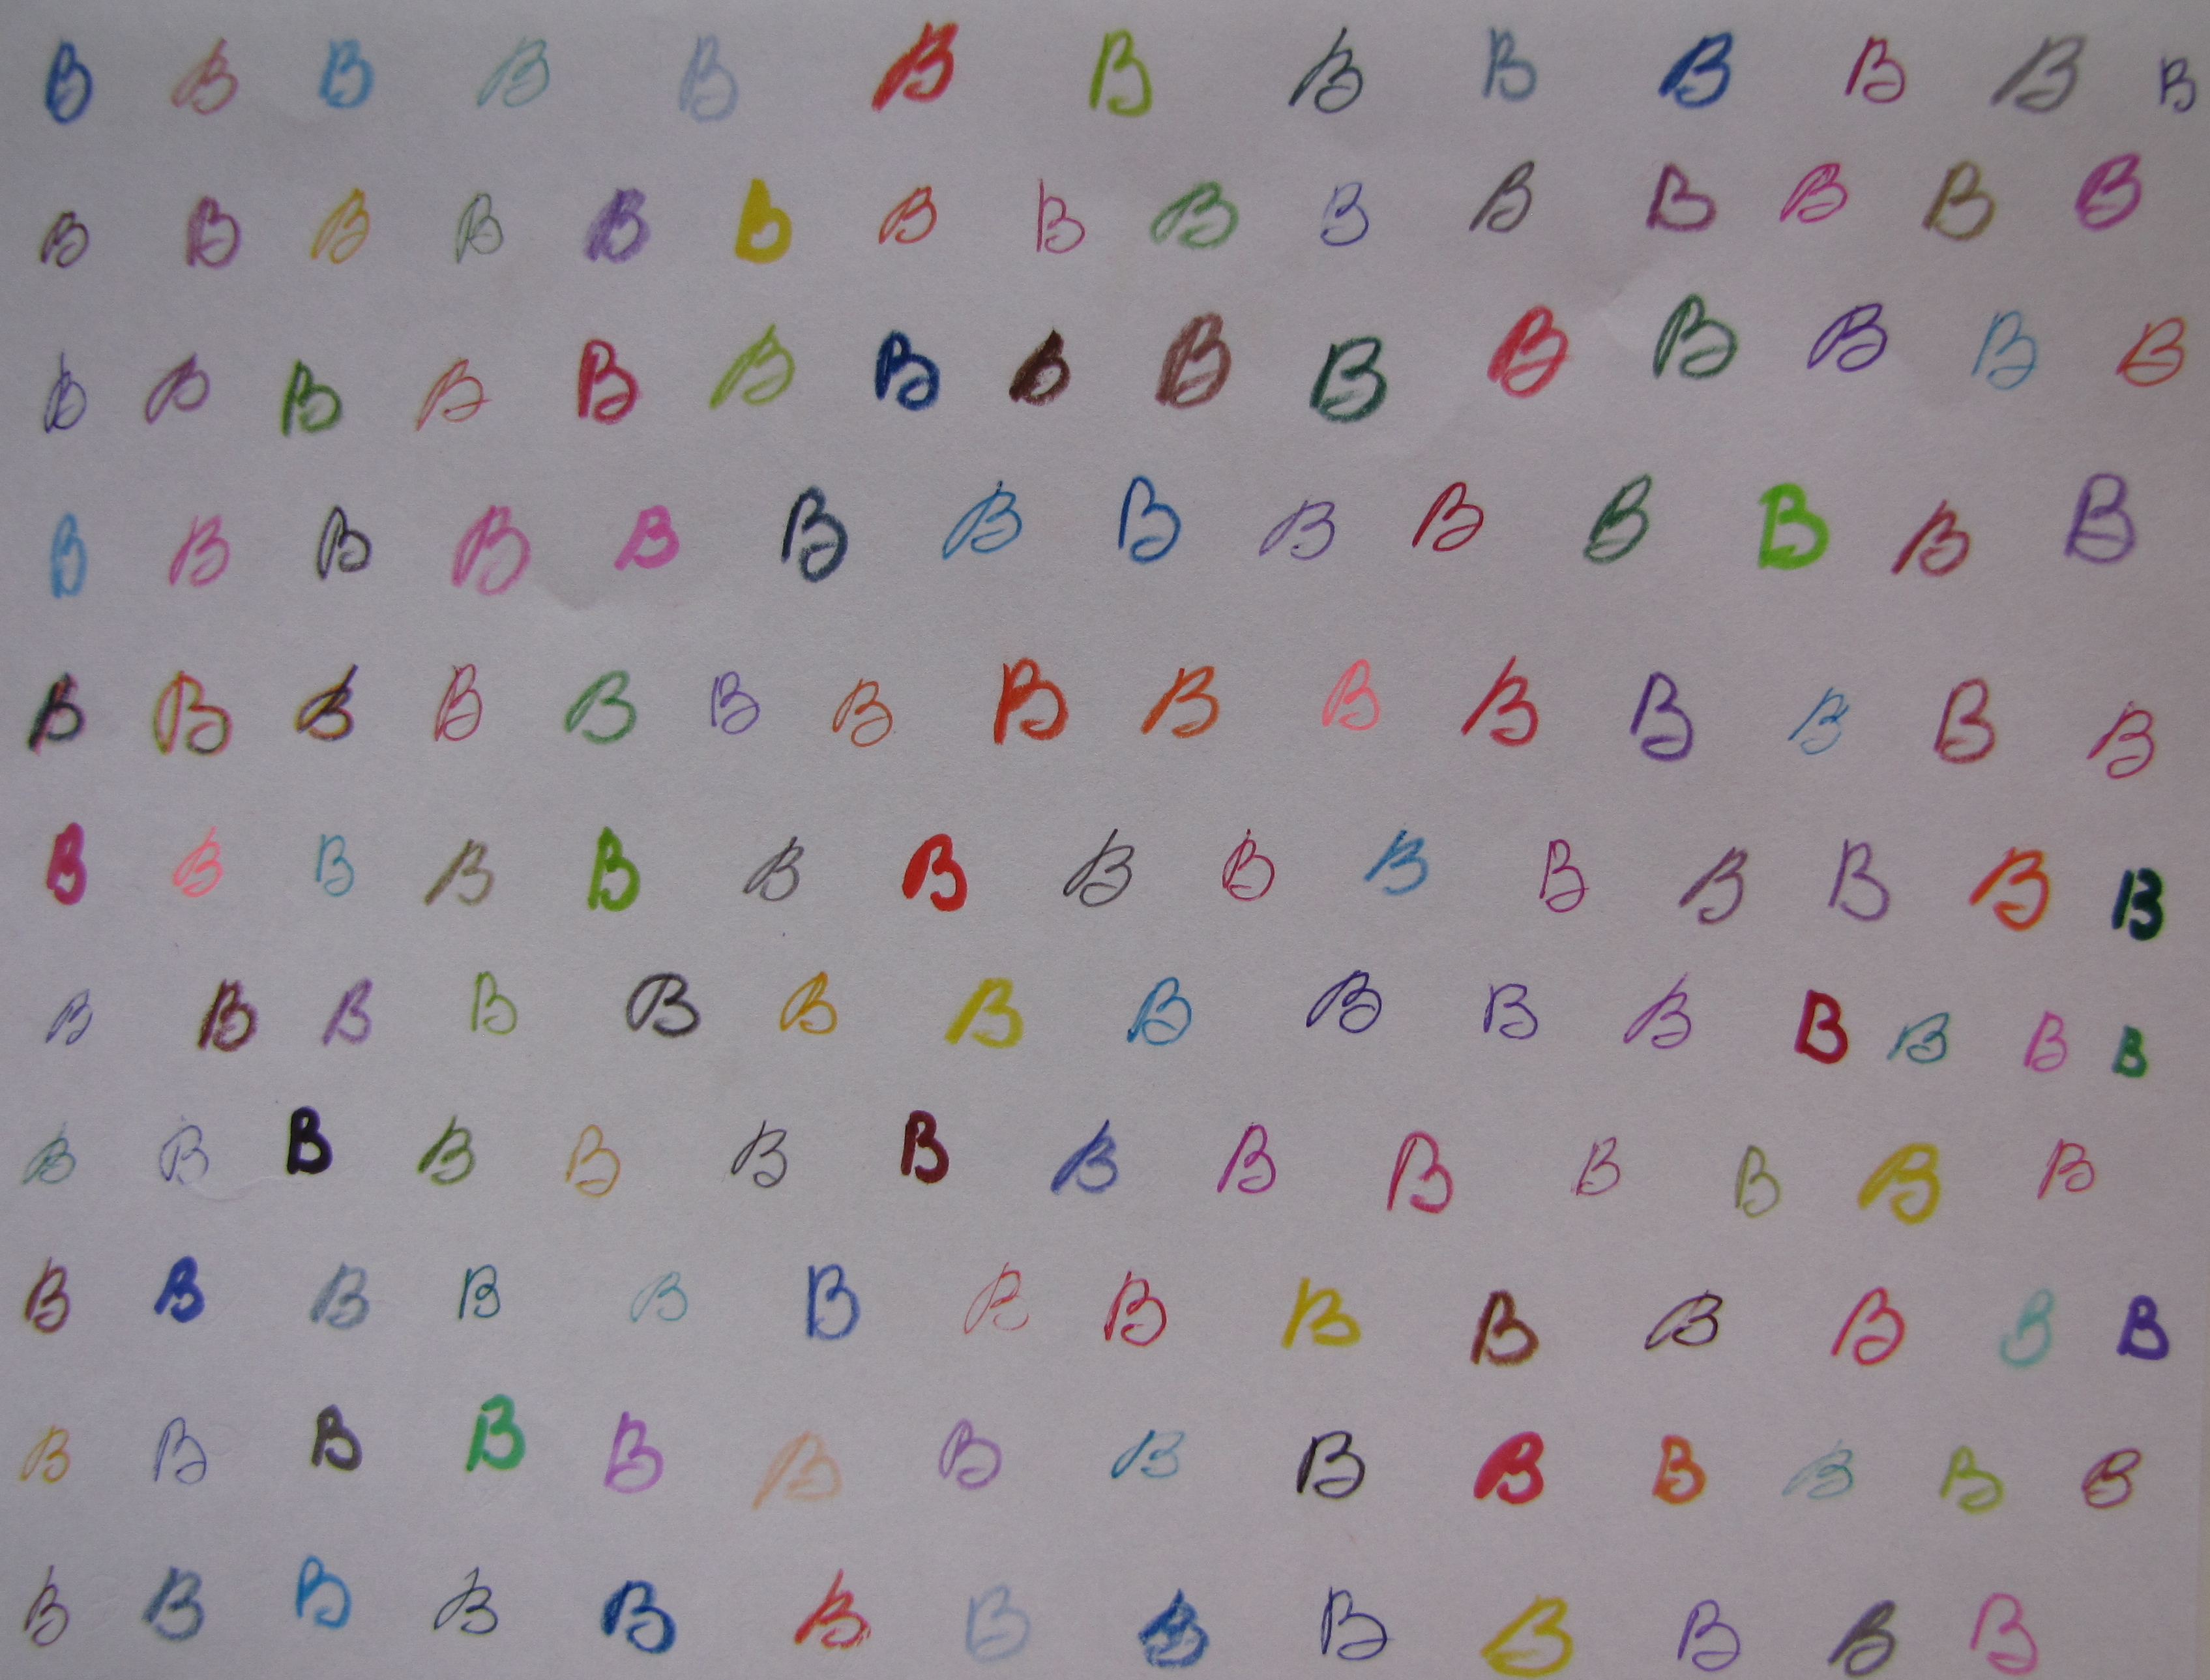 B B B B B B B B B B B B B
B B B B B B B B B B B B B B B
B B B B B B B B B B B B B B B
B B B B B B B B B B B B B B
B B B B B B B B B B B B B B B
B B B B B B B B B B B B B B B
B B B B B B B B B B B B B B B
B B B B B B B B B B B B B B
B B B B B B B B B B B B B B
B B B B B B B B B B B B B B
B B B B B B B B B B B B B